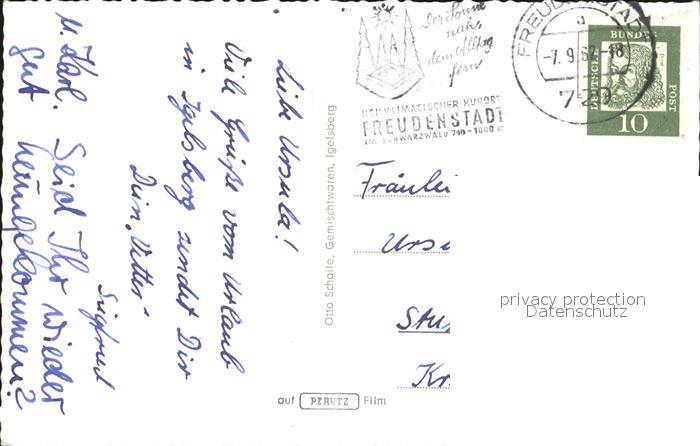 Liebe Ursula!
Viele Grüße vom Urlaub
in Igelsberg sendet Dir
Dein "Vetter"
Siegfried
u. Karl.
Seid Ihr wieder
gut heimgekommen?
Otto Schaile, Gemischtwaren, Igelsberg
auf PERUTZ Film
Der Sonne
nah,
dem Alltag
fern
HEILKLIMATISCHER KURORT
FREUDENSTADT
IM SCHWARZWALD 740-1000 m
FREUDENSTADT
-7.9.62-18
DEUTSCHE BUNDESPOST
10
Fräulei
Urs
Stu
Kr.
privacy protection
Datenschutz